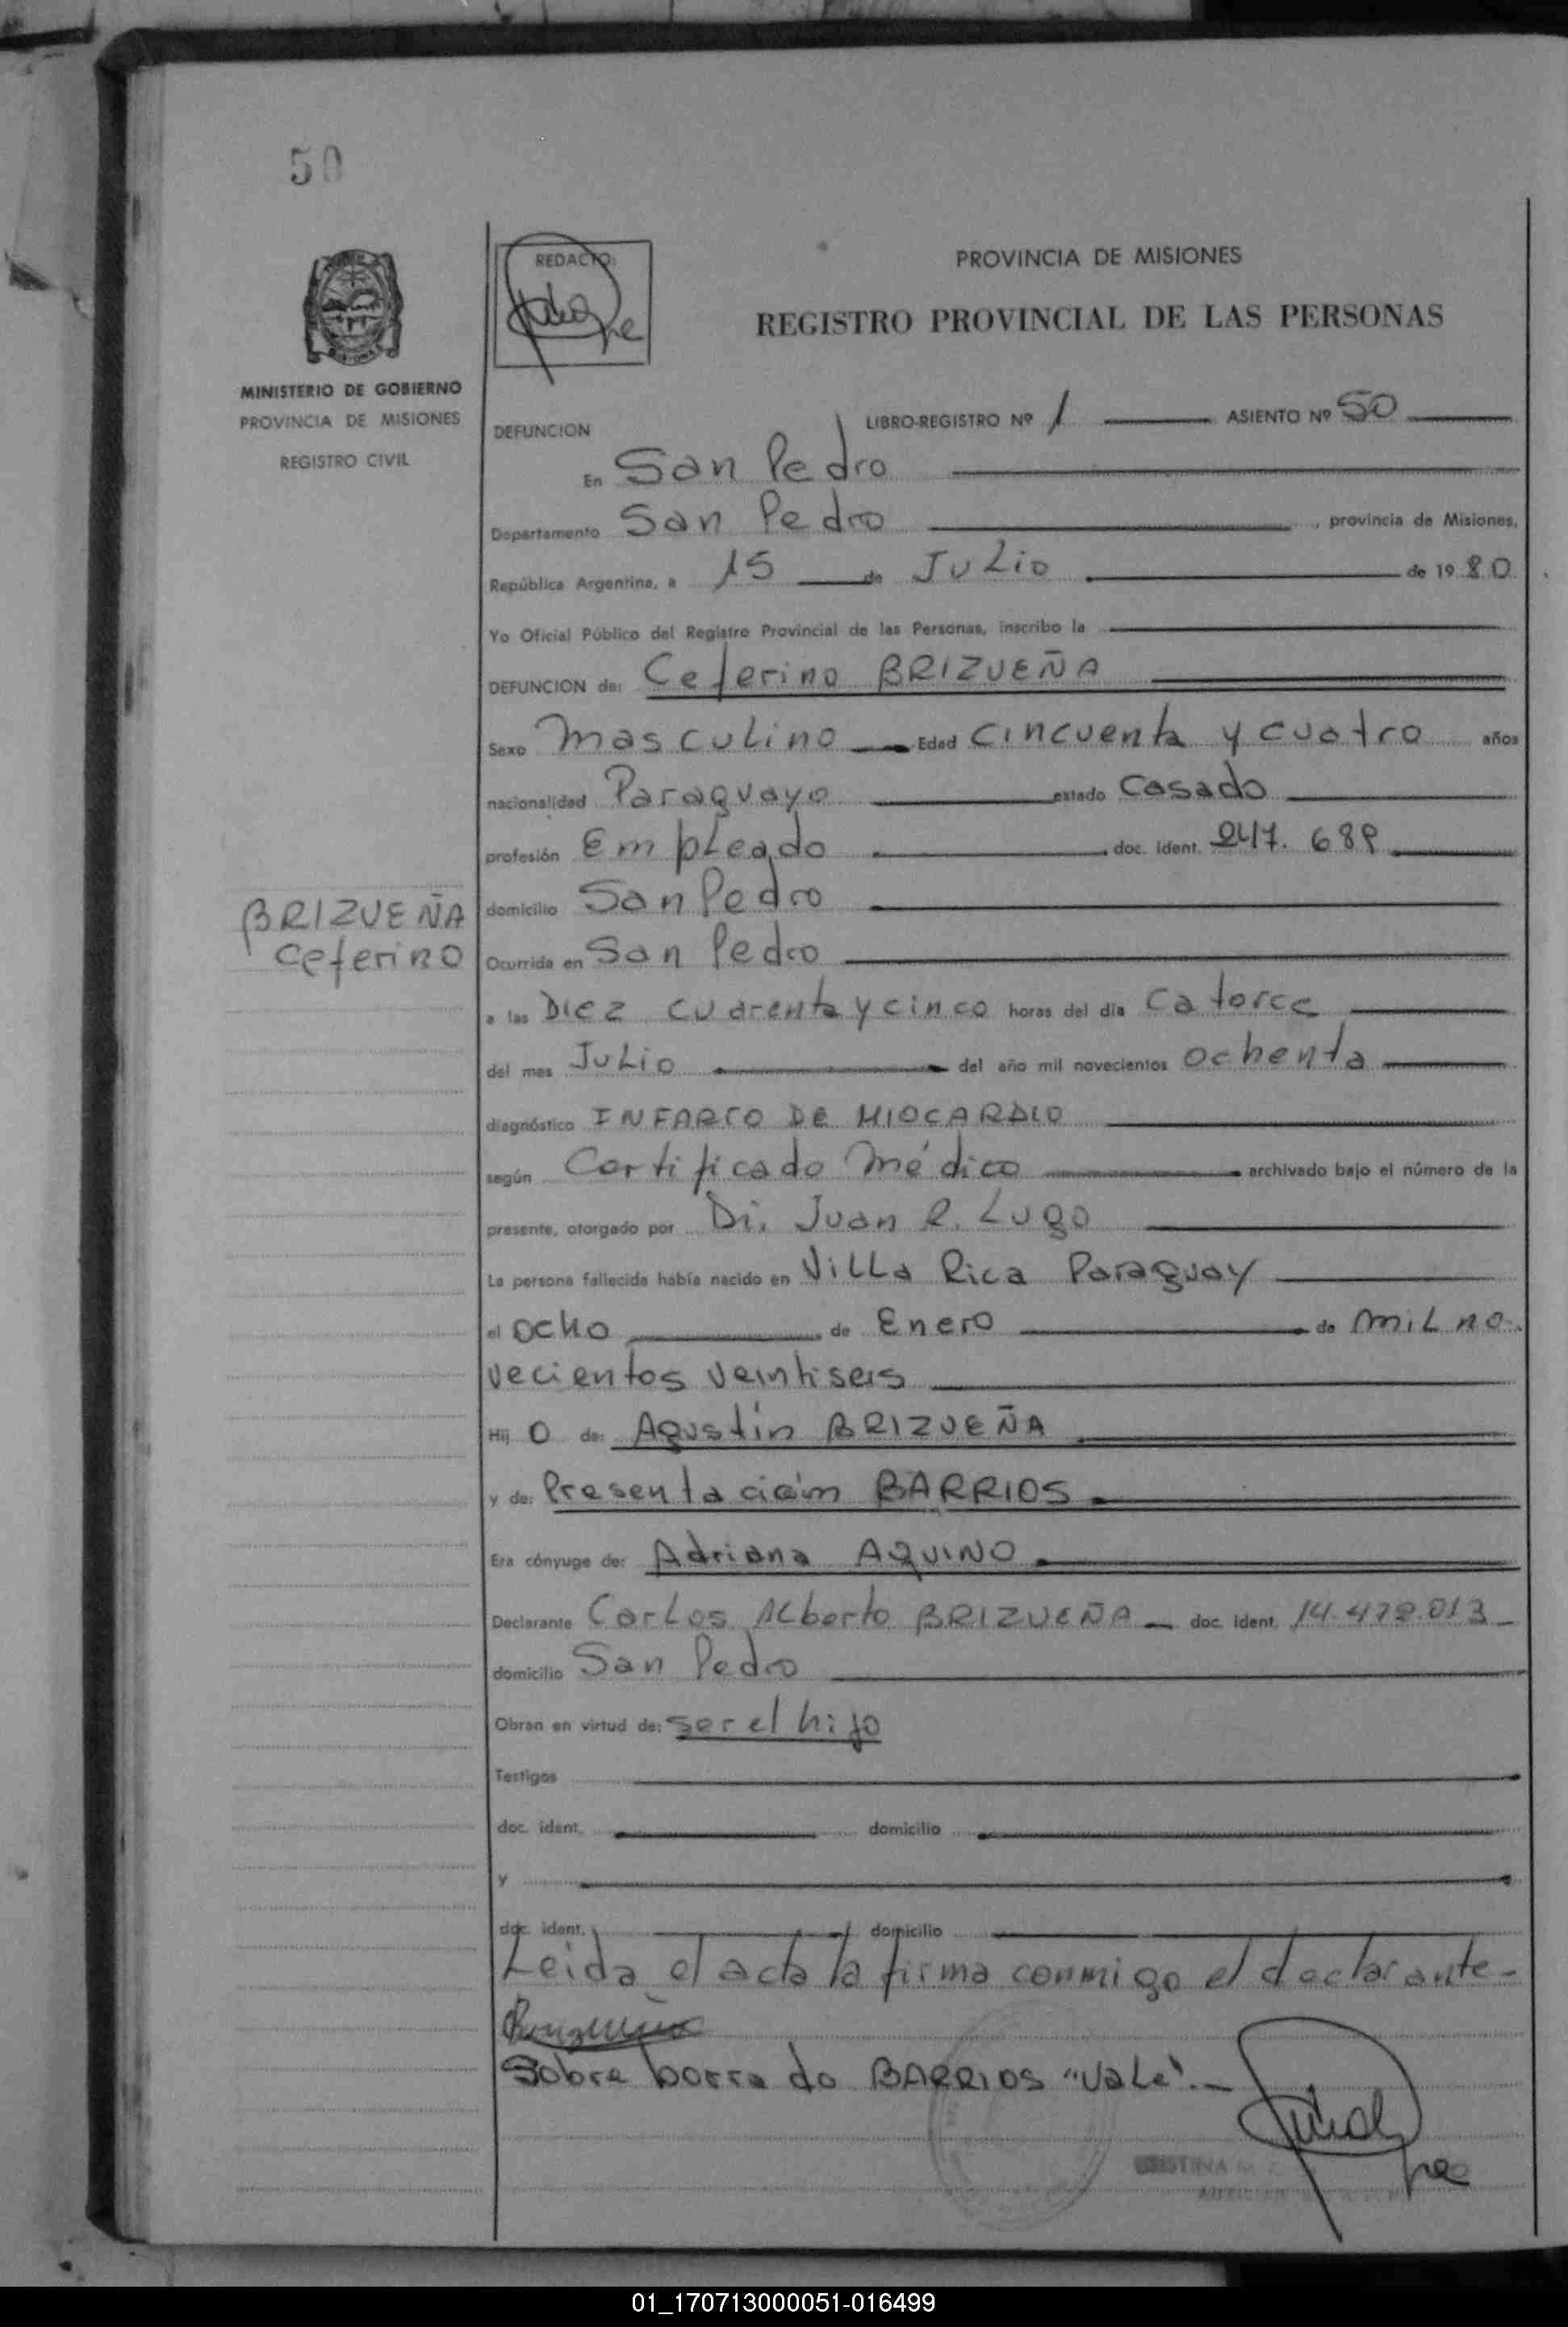 50
REDACTO:
PROVINCIA DE MISIONES
REGISTRO PROVINCIAL DE LAS PERSONAS
MINISTERIO DE GOBIERNO
PROVINCIA DE MISIONES
REGISTRO CIVIL
DEFUNCION
LIBRO-REGISTRO Nº 1 ASIENTO Nº 50
En San Pedro
Departamento San Pedro, provincia de Misiones,
República Argentina, a 15 de Julio de 1980
Yo Oficial Público del Registro Provincial de las Personas, inscribo la
DEFUNCION de: Ceferino BRIZUEÑA
Sexo Masculino Edad Cincuenta y cuatro años
nacionalidad Paraguayo estado Casado
profesión Empleado doc. ident. 247.689
BRIZUEÑA
Ceferino
domicilio San Pedro
Ocurrida en San Pedro
a las Diez cuarenta y cinco horas del día Catorce
del mes Julio del año mil novecientos ochenta
diagnóstico INFARTO DE MIOCARDIO
según Certificado Médico archivado bajo el número de la
presente, otorgado por Dr. Juan R. Lugo
La persona fallecida había nacido en Villa Rica Paraguay
el ocho de Enero de mil no-
vecientos veintiseis
Hij o de: Agustín BRIZUEÑA
y de: Presentación BARRIOS
Era cónyuge de: Adriana AQUINO
Declarante Carlos Alberto BRIZUEÑA doc. ident. 14.472.013
domicilio San Pedro
Obran en virtud de: ser el hijo
Testigos
doc. ident. domicilio
y
doc. ident. domicilio
Leida el acta la firma conmigo el declarante-
Brizueña
Sobre borrado BARRIOS "Vale".-
CRISTINA M.
01_170713000051-016499